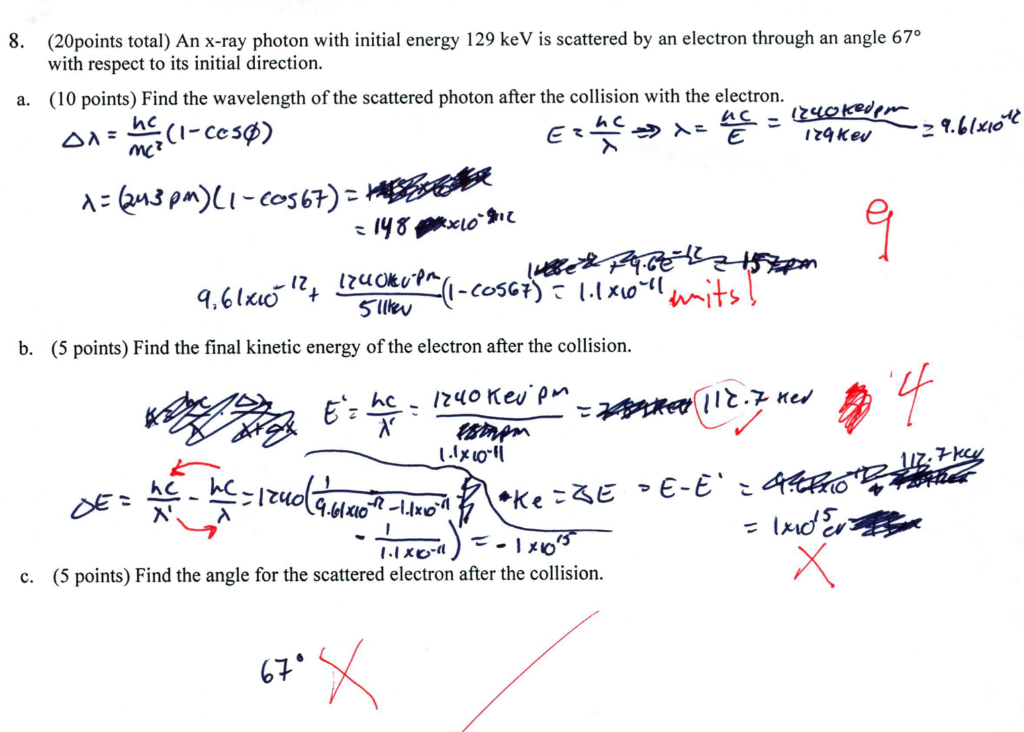 8. (20points total) An x-ray photon with initial energy 129 keV is scattered by an electron through an angle 67°
with respect to its initial direction.
a. (10 points) Find the wavelength of the scattered photon after the collision with the electron.
Δλ = hc/mc² (1-cosφ)
E = hc/λ => λ = hc/E = 1240 KeV pm/129 KeV = 9.61x10⁻¹²
λ = (2.43 pm)(1-cos67) =
= 148 x10⁻¹²
9
9.61x10⁻¹² + 1240KeV pm/511KeV (1-cos67) = 1.1x10⁻¹¹ units!
b. (5 points) Find the final kinetic energy of the electron after the collision.
E' = hc/λ' = 1240 KeV pm/1.1x10⁻¹¹ = 112.7 KeV
4
ΔE = hc/λ' - hc/λ = 1240(1/9.61x10⁻¹² - 1.1x10⁻¹¹
- 1/1.1x10⁻¹¹) = -1x10¹⁵
Ke = ΔE = E-E' = 112.7 KeV
= 1x10¹⁵ eV
X
c. (5 points) Find the angle for the scattered electron after the collision.
67° X